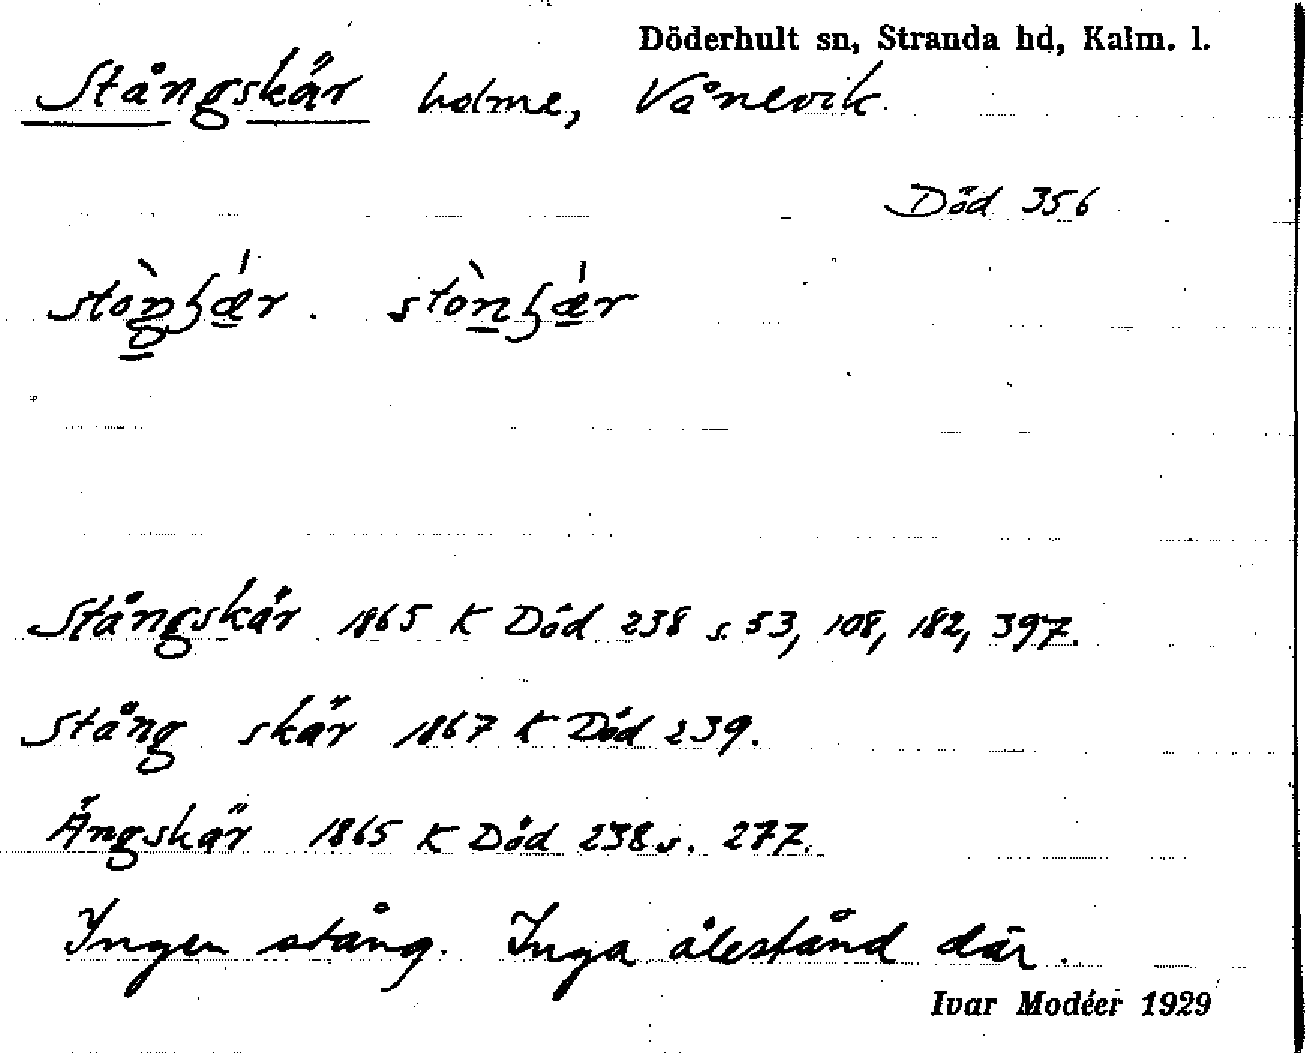 Döderhult sn, Stranda hd, Kalm. l.
Stångskär holme, Vånevik.
Död 356
Stångskär 1865 K Död 238 s. 53, 108, 182, 397.
Stång skär 1867 K Död 239.
Ängskär 1865 K Död 238 s. 277.
Ingen stång. Inga ålestånd där.
Ivar Modéer 1929